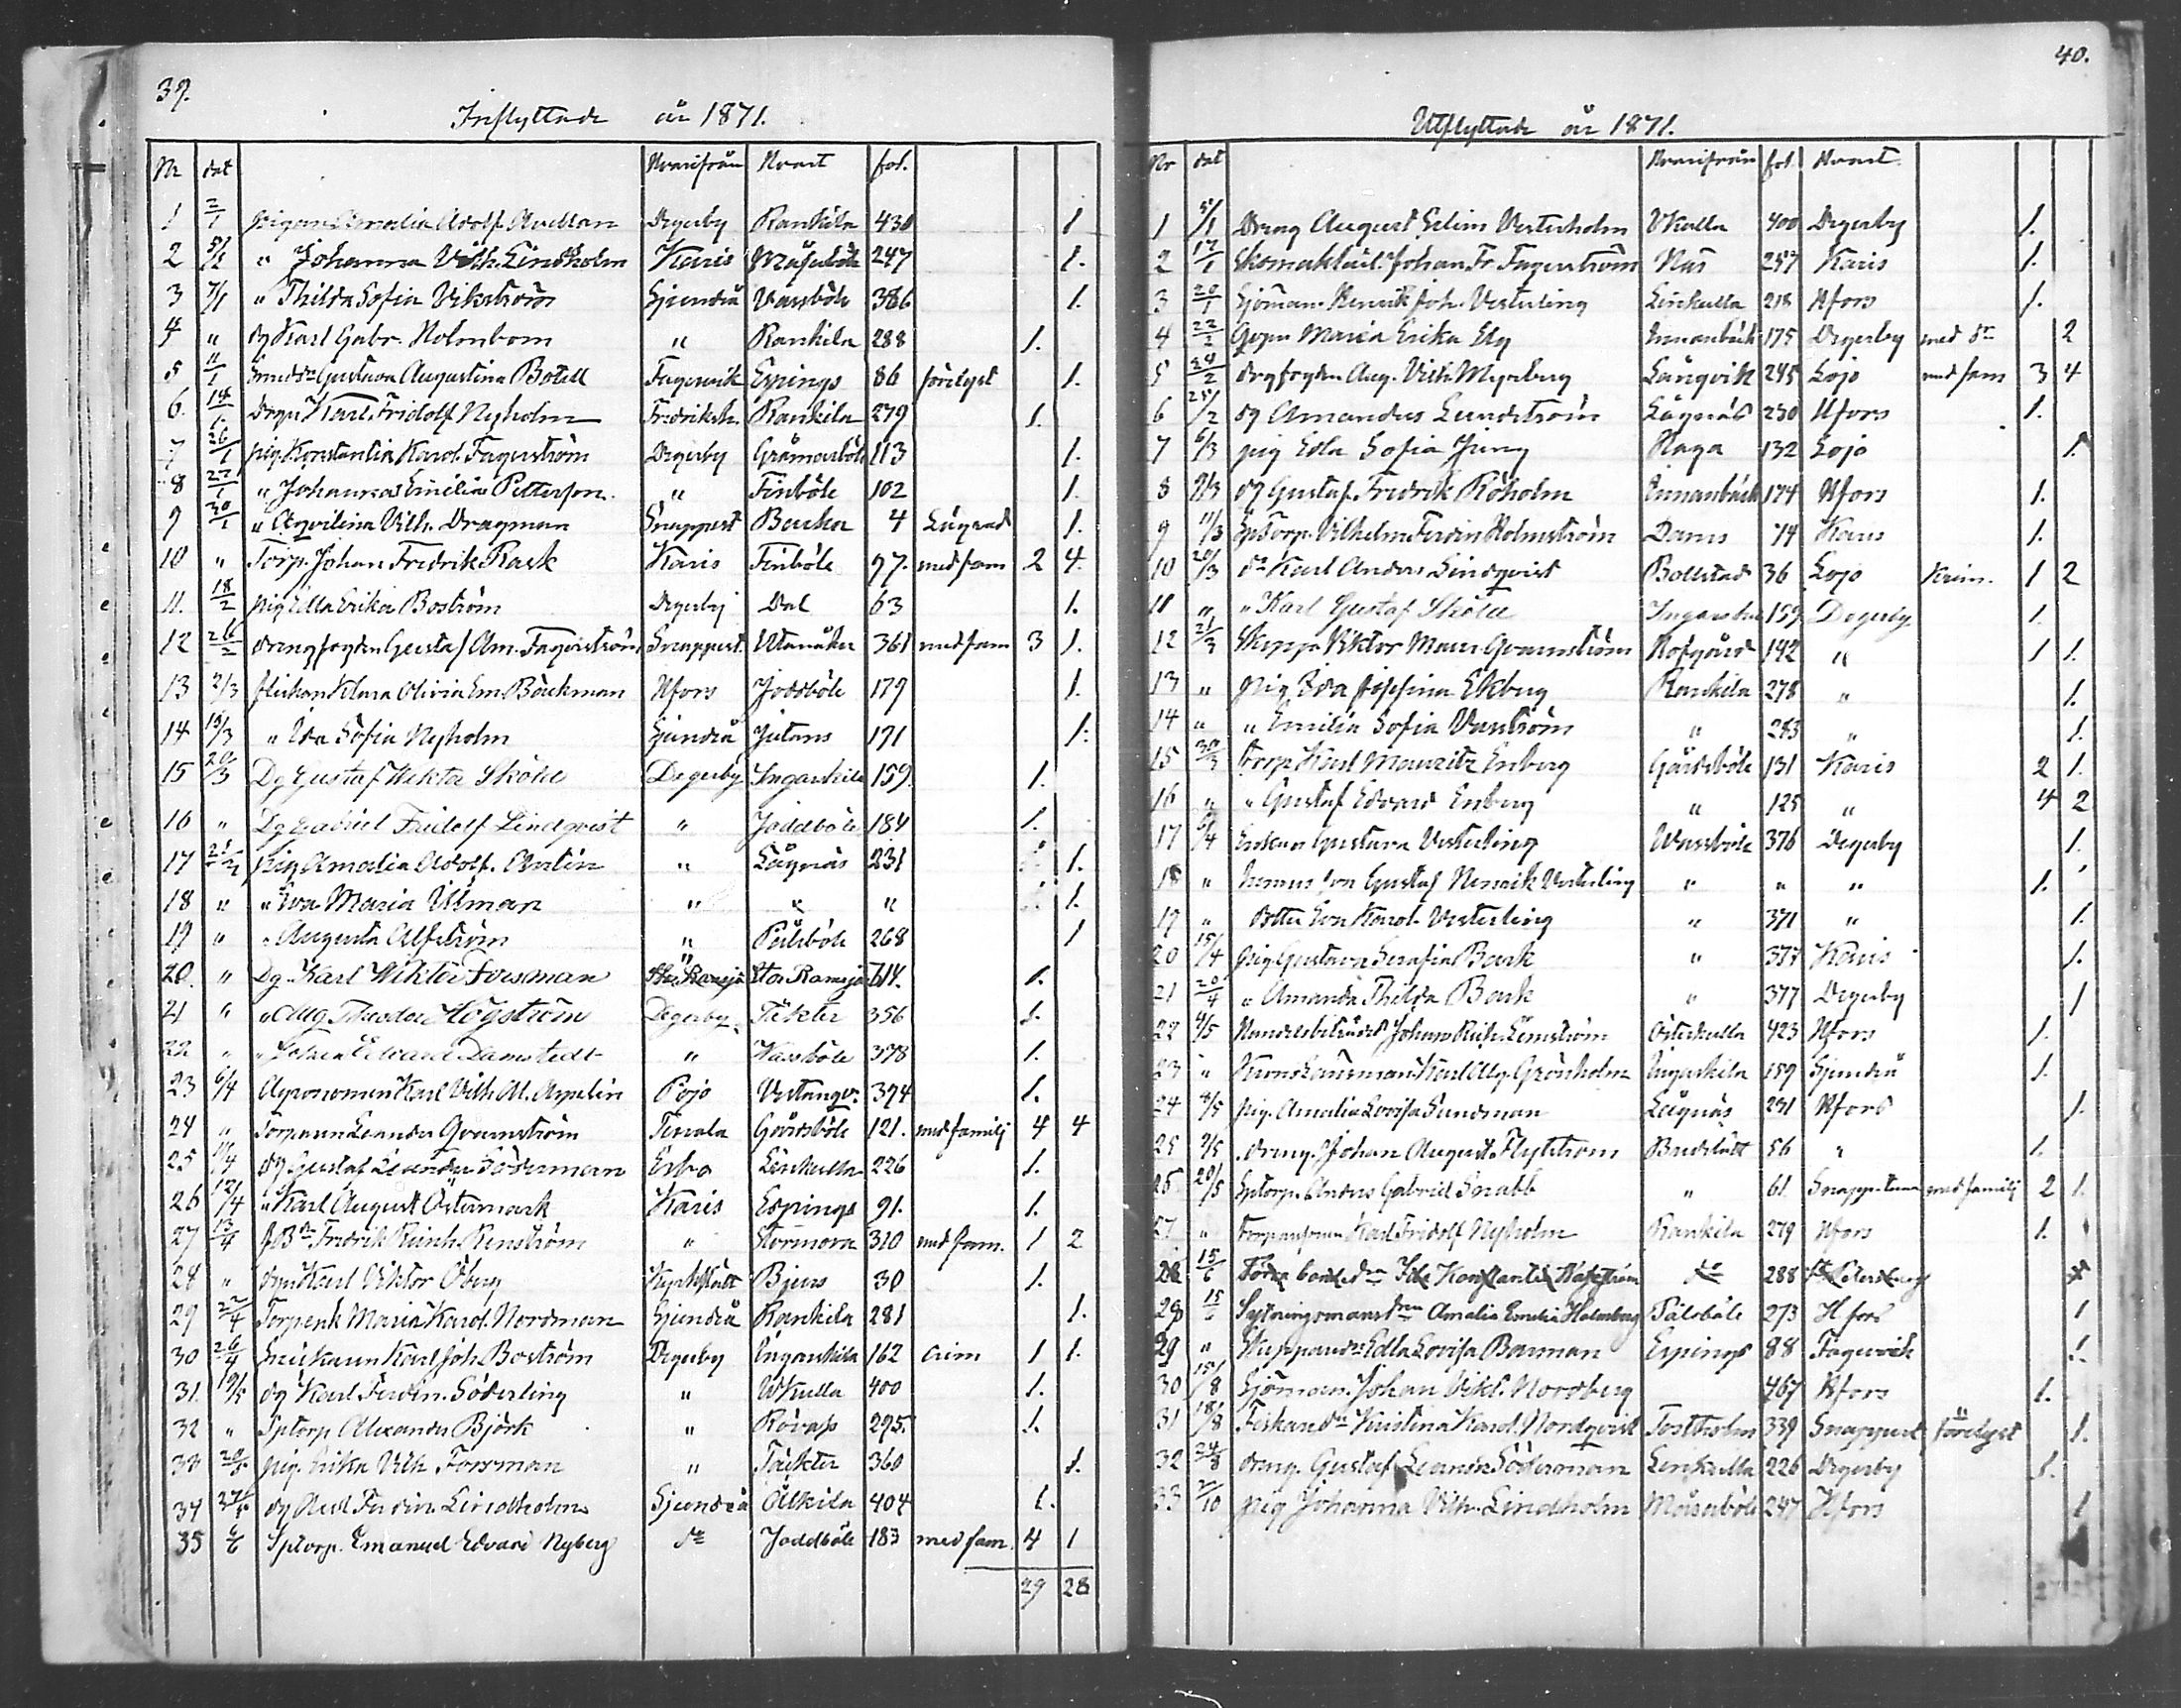 39.
Inflyttade år 1871.
Nr dat Hvarifrån Hvart fol.
1 2/1 pigan Amalia Adolf. Degerby Rankila 430 1
2 5/1 " Johanna Vilh. Lindholm Karis 247 1.
3 7/1 " Thilda Sofia Vikström Sjundeå Vassböle 386 1.
4 " dg Karl Gabr. Holmbom " Rankila 288 1.
5 11/1 Gustava Augustina Botell Fagervik Espings 86 förelyst 1.
6. 14/1 Karl Fridolf Nyholm Fredriksh. Rankila 279 1.
7 26/1 pig Konstantia Karol. Fagerström Degerby 113 1.
8 27/1 " Johanna Emilia Petterson " Finböle 102 1.
9 30/1 " Aqvilina Vilh. Dragman Snappert 4 1.
10 " Torp. Johan Fredrik Rask Karis Finböle 97. med fam 2 4.
11. 18/2 pig Edla Erika Boström Degerby Dal 63 1.
12 26/2 drengfogden Gustaf Am. Fagerström Snappert. Utanåker 361 med fam 3 1.
13 2/3 Klara Olivia Em. Bäckman Hfors Joddböle 179 1.
14 15/3 " Ida Sofia Nyholm Sjundeå Jutans 191 1.
15 20/3 Dg Gustaf Wiktor Sköld Degerby Ingarskila 159. 1.
16 " Dg Gabriel Fridolf Lindqvist " Joddböle 184 1.
17 pig Amalia Adolf. " Lågnäs 231 1.
18 " " Eva Maria Ulman " " " 1.
19 " " Augusta Alfström " Pålsböle 268 1
20. " Dg. Karl Wiktor Forsman Stor Ramsjö 1.
21 " " Aug. Theodor Högström Degerby Täkter 356 1.
22 " " Johan Edvard Damstedt " Vassböle 378 1.
23 6/4 Agronomen Karl Vilh. Al. Appelin Pojo Vestanqv. 394 1.
24 " Leander Granström Tenala Gårdsböle 121. med familj 4 4
25 dg Gustaf Leander Söderman Esbo Linkulla 226 1.
26 12/4 " Karl August Östermark Karis Espings 91. 1.
27 13/4 Fredrik Reinh. Renström " Stormora 310 med fam. 1 2
28 " Karl Viktor Öberg Kyrkslätt Bjers 30 1.
29 22/4 Torpenk Maria Karol. Nordman Sjundeå Rankila 281 1.
30 26/4 Karl Joh. Boström Degerby Ingarskila 162 1 1.
31. 19/5 dg Karl Ferdin. Söderling " 400 1.
32 " Sptorp Alexander Björk " Rövass 295. 1.
33 20/5 pig. Erika Vilh Forsman " Täkter 360 1.
34 27/5 dg Ferdin. Lindholm Sjundeå Älkila 404 1.
35 6/6 Sptorp. Emanuel Edvard Nyberg do Joddböle 183 med fam. 4 1
29 28
40.
Utflyttade år 1871.
Nr dat Hvarifrån fol. Hvart
1 5/1 Dreng August Selim Vesterholm 400 Degerby 1.
2 17/1 Johan Fr Fagerström Näs 257 Karis 1.
3 20/1 Sjöman. Henrik Joh. Vesterling Linkulla 218 Hfors 1.
4 22/2 Maria Erika Elg Innanbäck 175 Degerby med dr 2
5 24/2 drgfogden Aug. Vilh. Myrberg Långvik 245 Lojo med fam 3 4
6 25/2 dg Amandus Lundström Lågnäs 230 Hfors 1.
7 6/3 pig Edla Sofia Ljung Haga 132 Lojo 1.
8 9/3 dg Gustaf Fredrik Röholm Innanbäck 174 Hfors 1.
9 11/3 Sptorp. Vilhelm Ferdin Holmström Dams 74 Karis 1.
10 20/3 do Karl Anders Lindqvist Bollstad 36 Lojo 1 2
11 " " Karl Gustaf Sköld 159 Degerby 1.
12 21/3 Viktor Maur. Granström Hofgård 142 " 1 1.
13 " pig Ida Josefina Ekberg Rankila 278 " 1.
14 " " Emilia Sofia " 283 " 1.
15 30/3 torp. Karl Mauritz Enberg Gårdsböle 131 Karis 2 1.
16 " " Gustaf Edvard Enberg " 125 " 4 2
17 6/4 Enkan Gustava Vesterling Wassböle 376 Degerby 1.
18 " hennes son Gustaf Henrik Vesterling " " " 1.
19 " dotter Eva Karol. Vesterling " 371 " 1.
20 15/4 pig. Gustava Serafia Bark " 377 Karis 1.
21 20/4 " Amanda Thilda Bark " 377 Degerby 1
22 4/5 Handelsbiträdet Johan Lemström Österkulla 423 Hfors 1.
23 " Kronolänsman Karl Alg. Grönholm Ingarskila 159 Sjundeå 1.
24 8/5 pig. Amalia Lovisa Sundman Lågnäs 231 Hfors 1.
25 9/5 dreng. Johan August Flytström Brudslätt 56 " 1.
26 20/5 Sptorp. Anders Gabriel Snabb " 61 Snappertuna med familj 2 1.
27 " Karl Fridolf Nyholm Rankila 279 Hfors 1.
28 15/6 Ida Konstantia do 288 St Petersburg
28 15 Amalia Emelia Holmberg Pålsböle 273 Hfors 1
29 " Edla Lovisa Barman Espings 88 Fagervik 1.
30 15/8 Sjöman. Johan Vikt. Nordberg 467 Hfors 1.
31 18/8 Kristina Karol. Nordqvist Tostholm 339 Snappert förelyst 1.
32 24/8 dreng. Gustaf Leander Söderman Linkulla 226 Degerby 1.
33 2/10 pig Johanna Vilh. Lindholm 247 Hfors 1